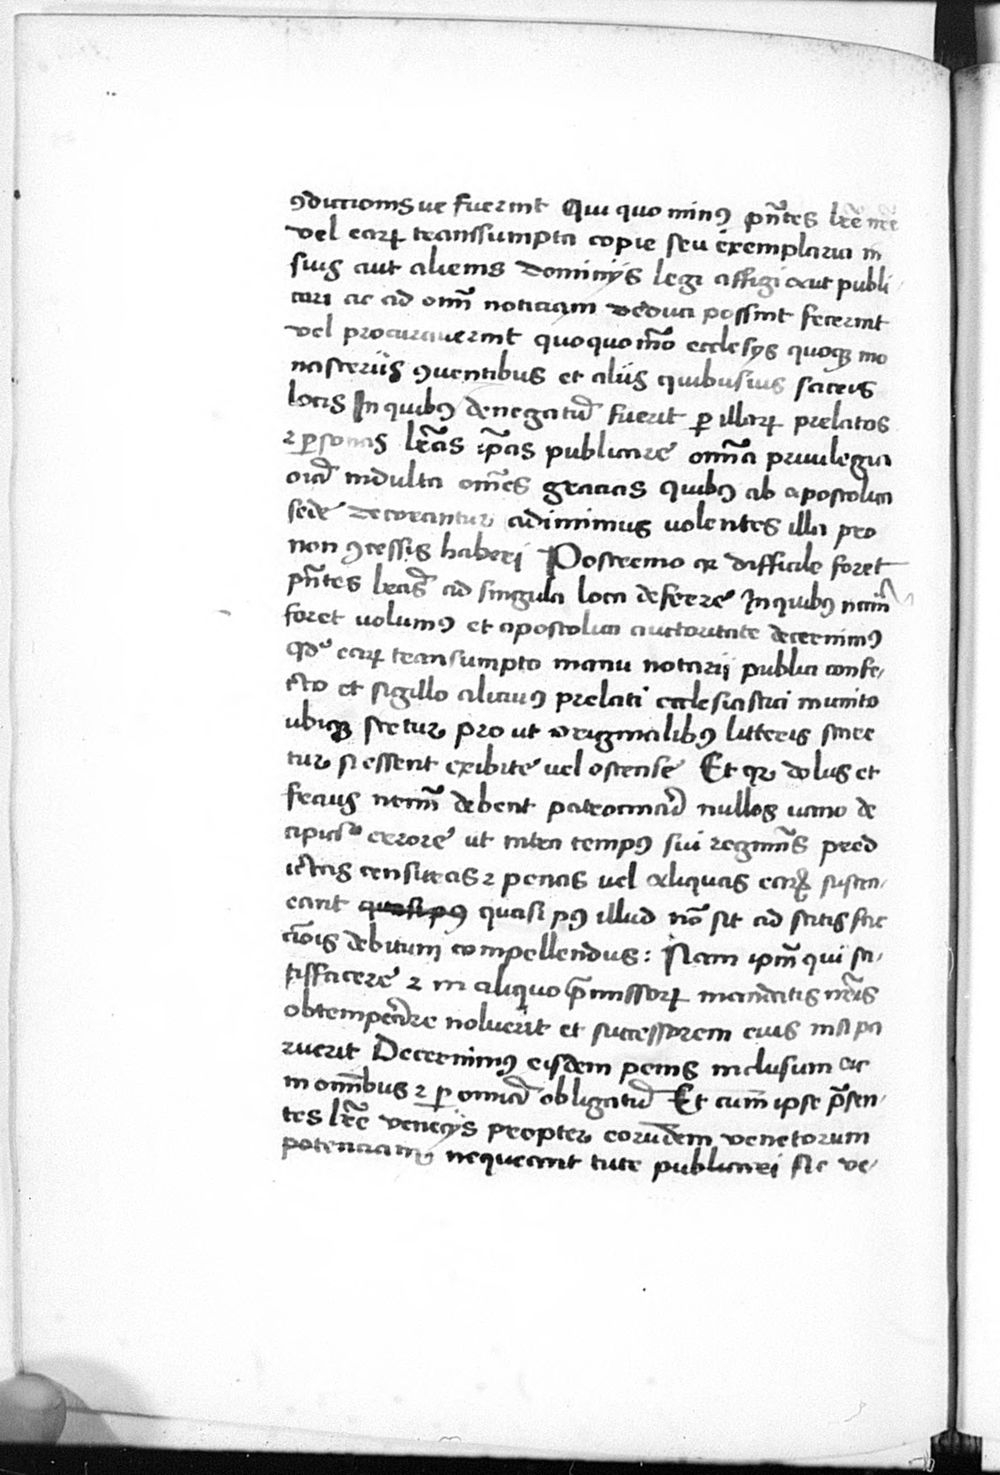 ꝯdictionis ue fuerint Qui quo minꝰ pn̄tes lr̄e nr̄e
vel earꝝ transsumpta copie seu exemplaria in
suis aut alienis dominijs legi affigi aut publi
cari ac ad om̄ noticiam deduci possint fecerint
vel procurauerint quoquo mō ecclesijs quoqꝫ mo
nasterijs ꝯuentibus et alijs quibusuis sacris
locis In quibꝰ denegatū fuerit ꝑ illarꝝ prelatos
⁊ ꝑsonas lr̄as ip̄as publicare om̄ia priuilegia
ac indulta om̄es gracias quibꝰ ab apostolica
sede decorantur adimimus volentes illa pro
non ꝯcessis haberi Postremo qꝛ difficile foret
pn̄tes lr̄as ad singula loca deferre In quibꝰ nccm̄
foret volumꝰ et apostolica auctoritate decernimꝰ
qd earꝝ transumpto manu notarij publici confe
cto et sigillo alicuiꝰ prelati ecclesiastici munito
ubiqꝫ stetur pro ut originalibꝰ litteris stare
tur si essent exibite uel ostense Et qꝛ dolus et
fraus nemī debent patrocinari nullos uano de
cipi errore ut intra tempꝰ sui regimīs pred
ictas censuras ⁊ penas vel aliquas earꝝ sustin
eant quasi pꝰ quasi pꝰ illud nō sit ad satisfac
cōis debitum compellendus: Nam ipm̄ qui sa
tisfacere ⁊ in aliquo p̄missorꝝ mandatis nr̄is
obtemperare noluerit et successorem eius nisi pa
ruerit Decernimꝰ eisdem penis inclusum ac
in om̄ibus ⁊ ꝑ omnia obligatū Et cum ipse p̄sen
tes lr̄e venecijs propter eorundem venetorum
potenciam nequeant tute publicari sic ve